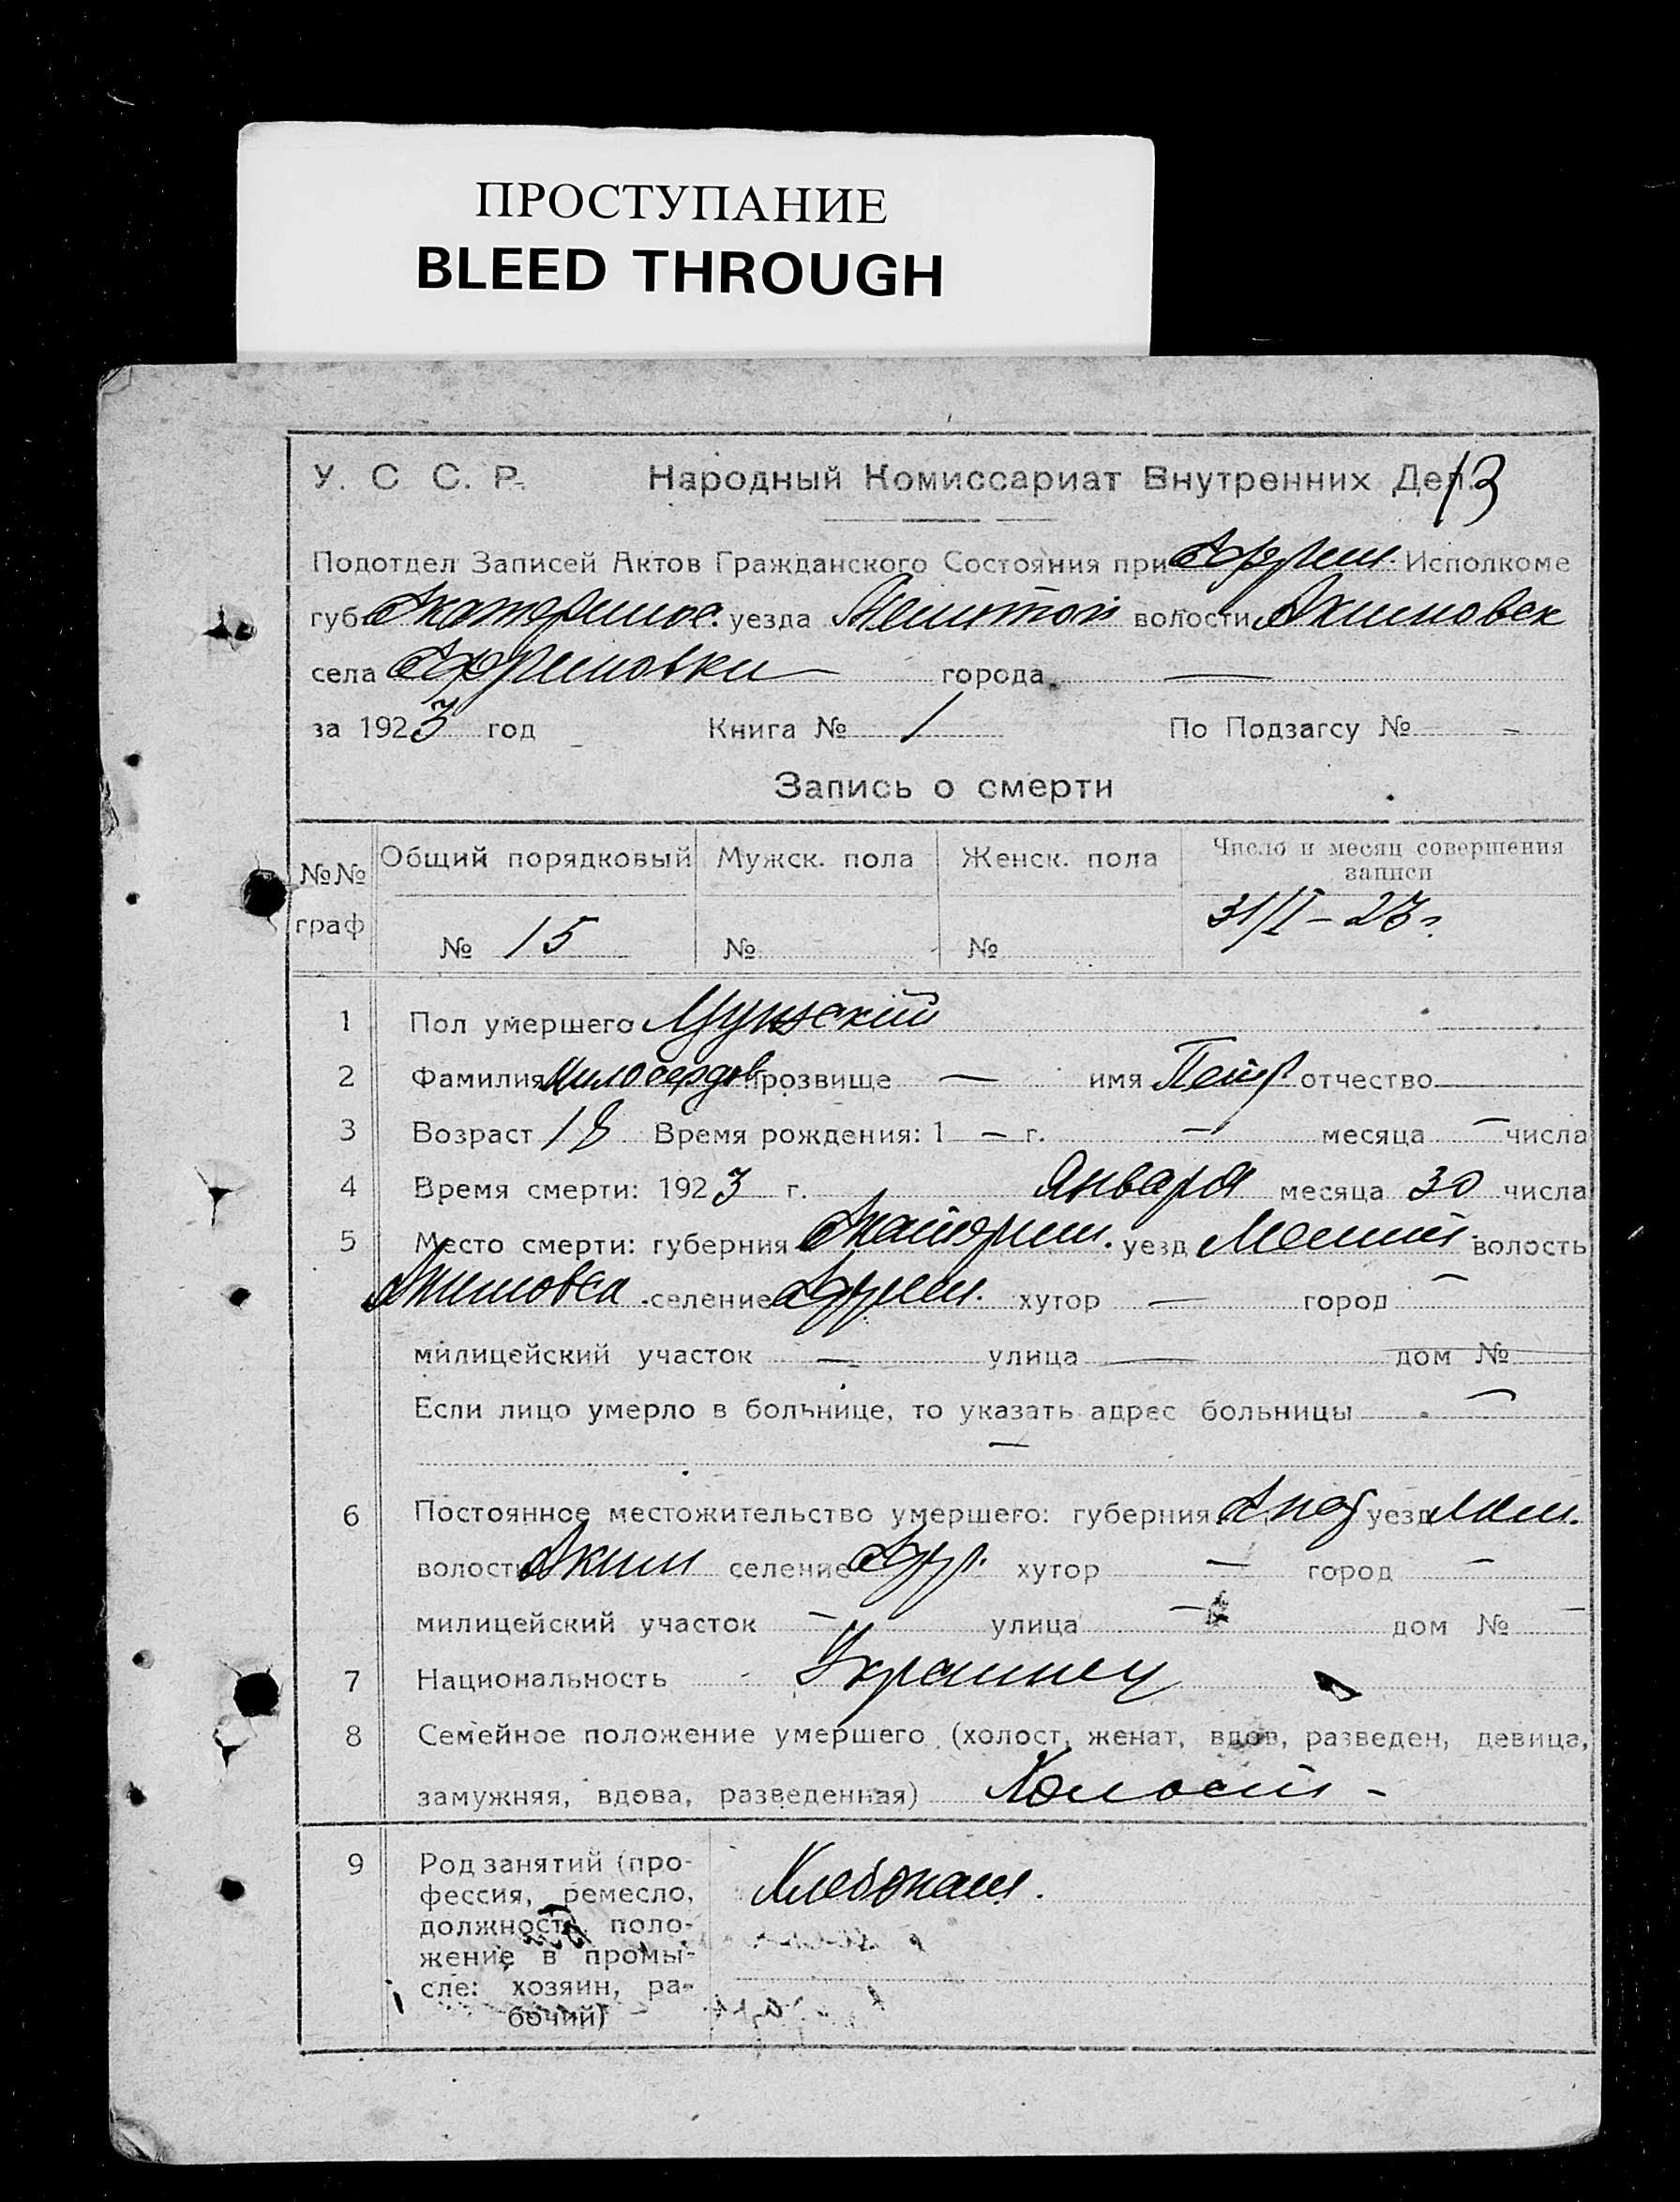 ПРОСТУПАНИЕ
BLEED THROUGH
13
У. С С. Р. Народный Комиссариат Внутренних Дел.
Подотдел Записей Актов Гражданского Состояния при Ефрем. Исполкоме
губ. Екатеринос. уезда Мелитоп волости Акимовск
села Ефремовки города —
за 1923 год Книга № 1 По Подзагсу № -
Запись о смерти
№№ граф Общий порядковый Мужск. пола Женск. пола Число и месяц совершения записи
№ 15 № № 31/I – 23 г.
1 Пол умершего Мужский
2 Фамилия Милосердов прозвище — имя Петр отчество
3 Возраст 18 Время рождения: 1 — г. — месяца — числа
4 Время смерти: 1923 г. Января месяца 30 числа
5 Место смерти: губерния Екатерин. уезд Мелит. волость
Акимовск. селение Ефрем. хутор — город —
милицейский участок — улица — дом №
Если лицо умерло в больнице, то указать адрес больницы —
—
6 Постоянное местожительство умершего: губерния уезд Мел.
волость Аким селение Ефр. хутор — город —
милицейский участок — улица — дом № —
7 Национальность Украинец
8 Семейное положение умершего (холост, женат, вдов, разведен, девица,
замужняя, вдова, разведенная) Холост -
9 Род занятий (про- Хлебопаш.
фессия, ремесло,
должность, поло-
жение в промы-
сле: хозяин, ра-
бочий)